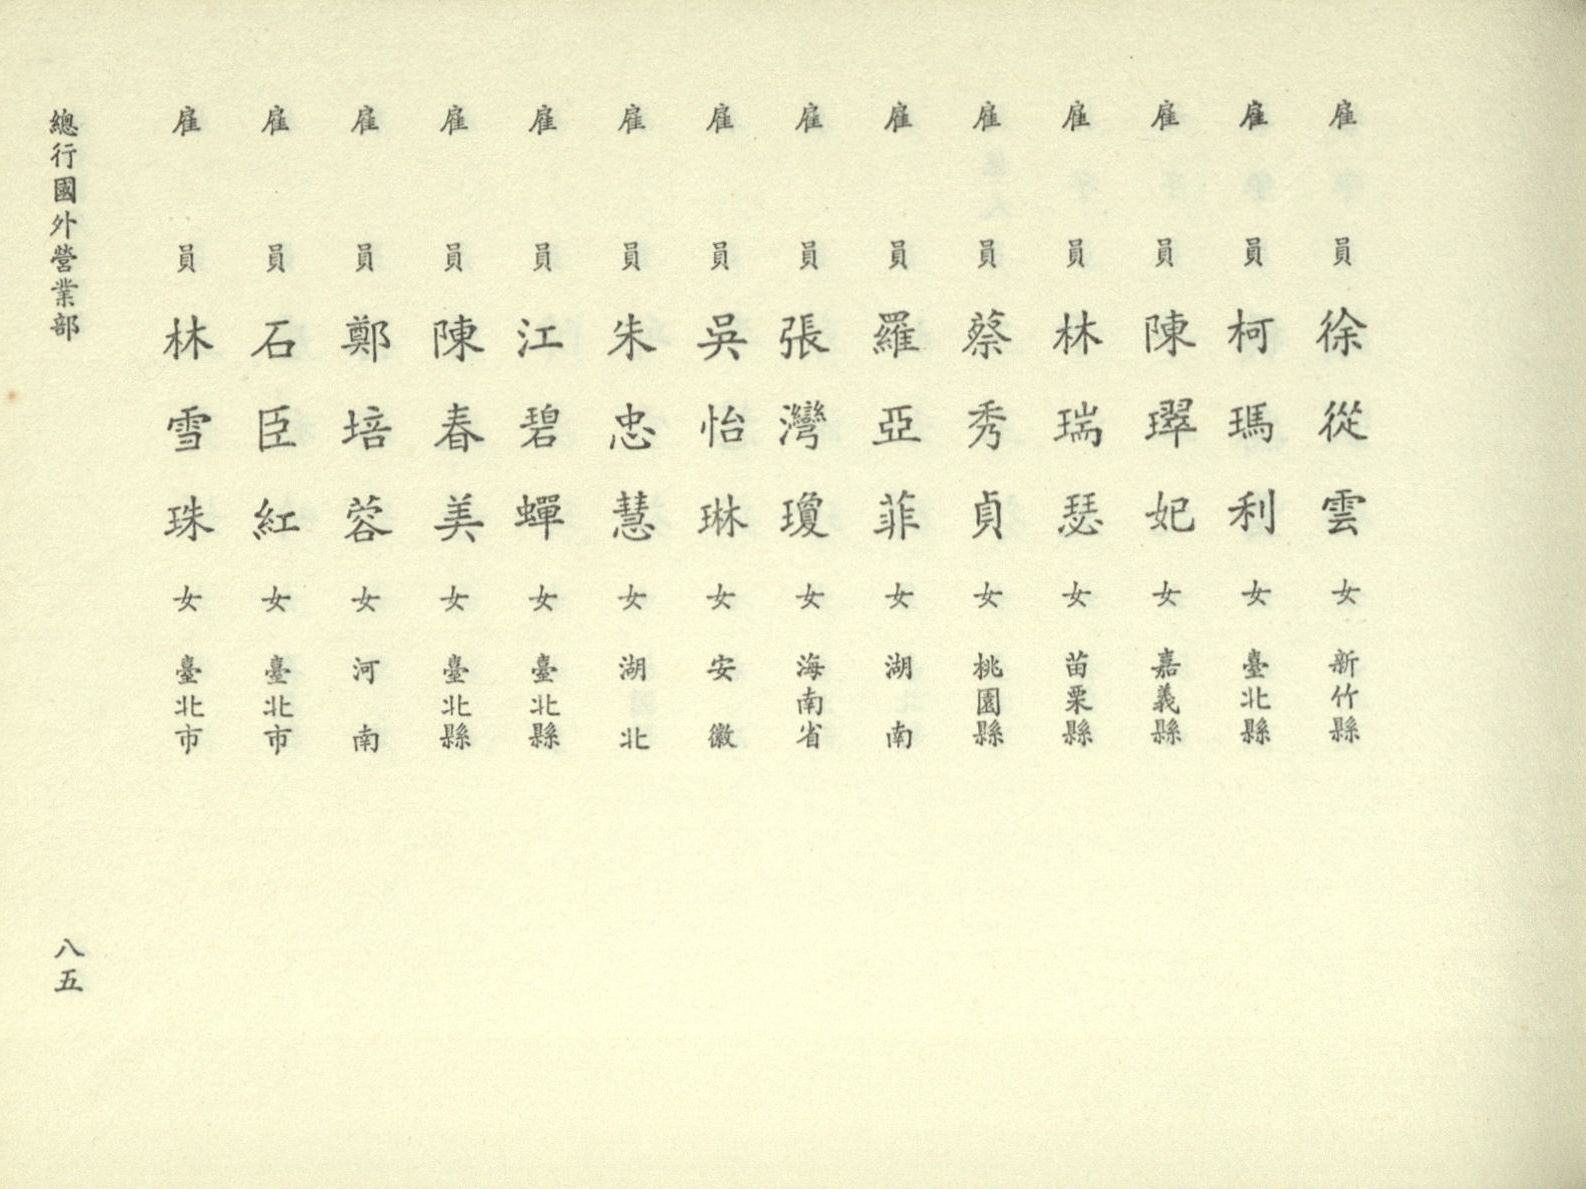 雇員徐從雲女新竹縣
雇員柯瑪利女臺北縣
雇員陳璻妃女嘉義縣
雇員林瑞瑟女苗栗縣
雇員蔡秀貞女桃園縣
雇員羅亞菲女湖南
雇員張灣瓊女海南省
雇員吳怡琳女安徽
雇員朱忠慧女湖北
雇員江碧蟬女臺北縣
雇員陳春美女臺北縣
雇員鄭培蓉女河南
雇員石臣紅女臺北市
雇員林雪珠女臺北市
總行國外營業部
八五